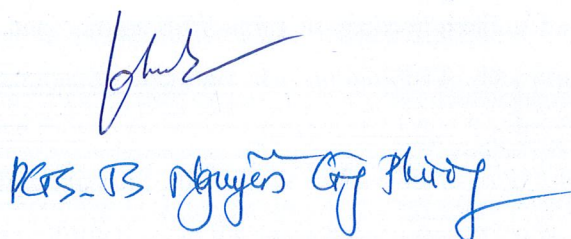 PGS-TS Nguyễn Công Phương